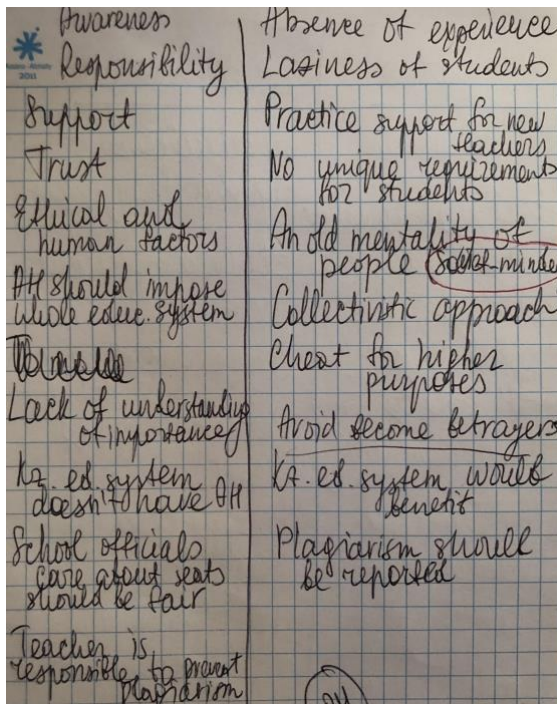 Awareness
Responsibility
Support
Trust
Ethical and
human factors
AH should impose
whole educ. system
Lack of understanding
of importance
Kz. ed. system
doesn't have AH
School officials
care about seats
should be fair
Teacher is
responsible to prevent
plagiarism
Absence of experience
Lasiness of students
Practice support for new
teachers
No unique requirements
for students
An old mentality of
people
Collectivistic approach
Cheat for higher
purposes
Avoid become betrayers
Kz. ed. system would
benefit
Plagiarism should
be reported
2011